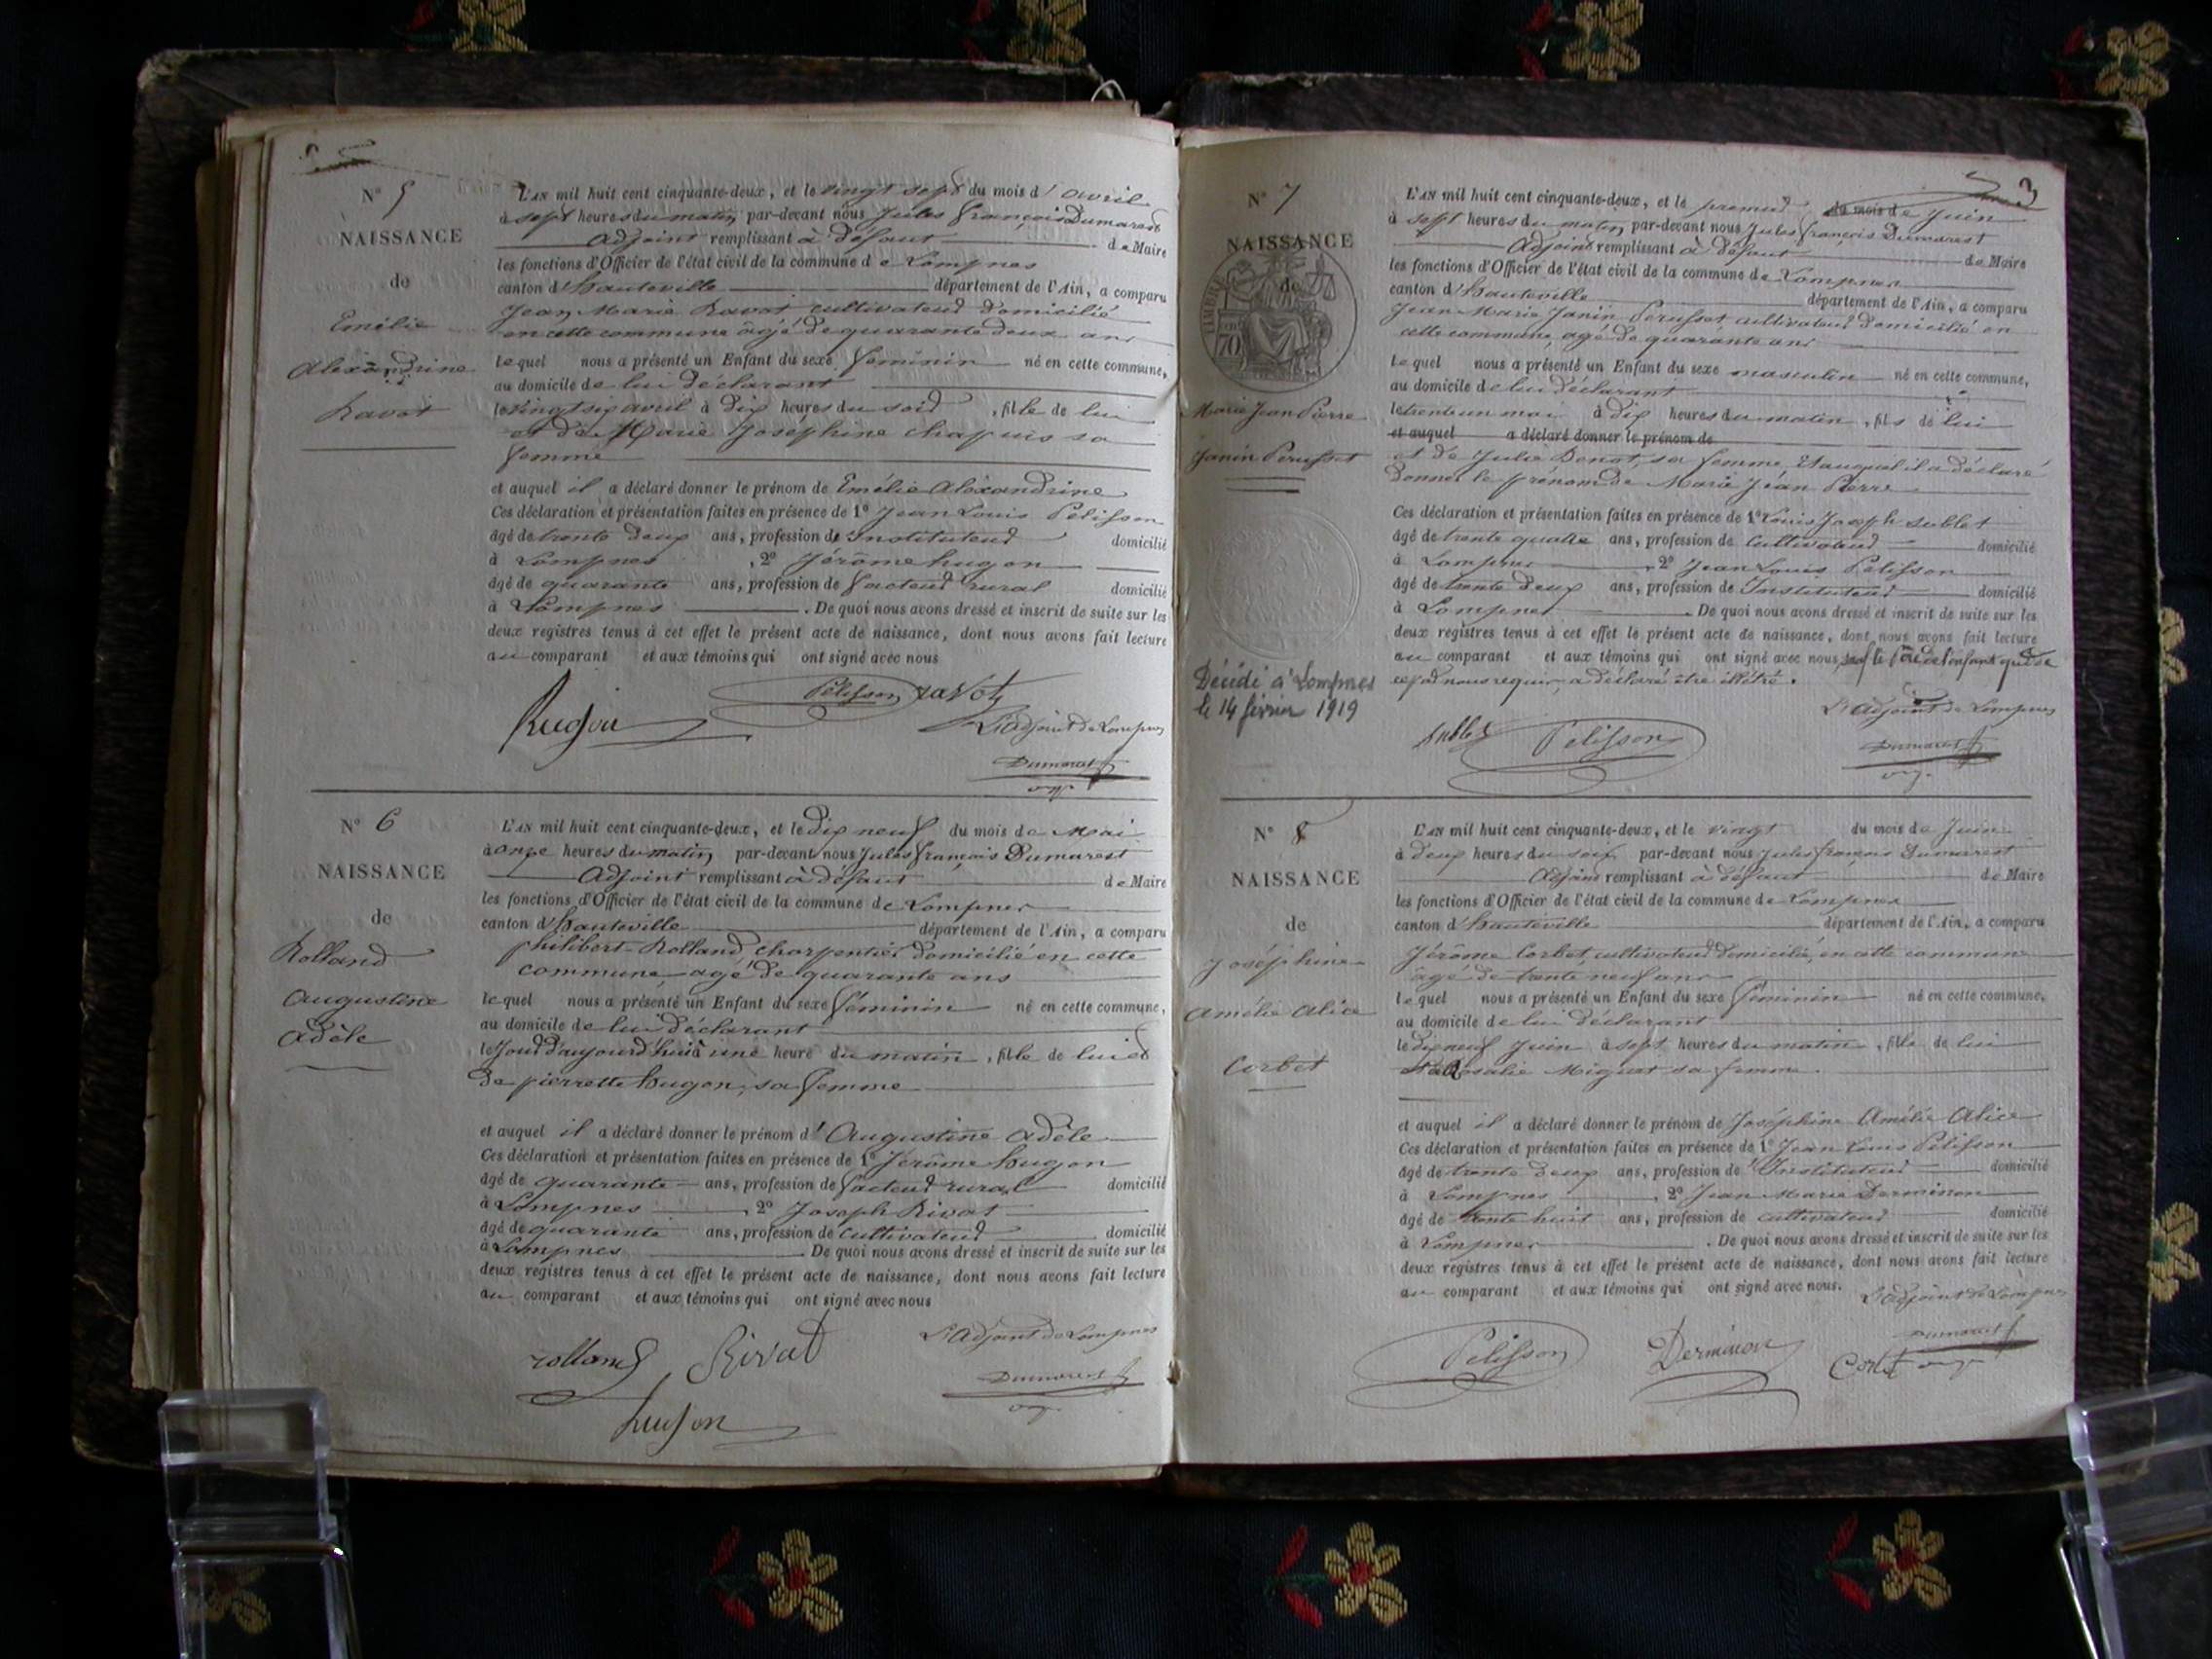 N° 5
NAISSANCE
de
Emélie
Alexandrine
Ravot
L'AN mil huit cent cinquante-deux, et le vingt sept du mois d'avril
à sept heures du matin par-devant nous Jules François Dumarest
Adjoint remplissant à défaut de Maire
les fonctions d'Officier de l'état civil de la commune de Lompnes
canton d'hauteville département de l'Ain, a comparu
Jean Marie Ravot cultivateur domicilié
en cette commune âgé de quarante deux ans
lequel nous a présenté un Enfant du sexe féminin né en cette commune,
au domicile de lui déclarant
le vingt six avril à dix heures du soir, fille de lui
et de Marie Joséphine Chapuis sa
femme
et auquel il a déclaré donner le prénom de Emélie Alexandrine
Ces déclaration et présentation faites en présence de 1° Jean Louis Pélisson
âgé de trente deux ans, profession de Instituteur domicilié
à Lompnes, 2° Jérôme hugon
âgé de quarante ans, profession de facteur rural domicilié
à Lompnes. De quoi nous avons dressé et inscrit de suite sur les
deux registres tenus à cet effet le présent acte de naissance, dont nous avons fait lecture
au comparant et aux témoins qui ont signé avec nous
Pélisson ravot
L'adjoint de Lompnes
Dumarest
N° 6
NAISSANCE
de
Rolland
Augustine
Adèle
L'AN mil huit cent cinquante-deux, et le dix neuf du mois de Mai
à onze heures du matin par-devant nous Jules François Dumarest
Adjoint remplissant à défaut de Maire
les fonctions d'Officier de l'état civil de la commune de Lompnes
canton d'hauteville département de l'Ain, a comparu
philibert Rolland, charpentier domicilié en cette
commune âgé de quarante ans
lequel nous a présenté un Enfant du sexe féminin né en cette commune,
au domicile de lui déclarant
le Jour d'aujourd'hui à une heure du matin, fille de lui et
de pierrette hugon, sa femme
et auquel il a déclaré donner le prénom d'Augustine Adèle
Ces déclaration et présentation faites en présence de 1° Jérôme hugon
âgé de quarante ans, profession de facteur rural domicilié
à Lompnes, 2° Joseph Rivat
âgé de quarante ans, profession de cultivateur domicilié
à Lompnes. De quoi nous avons dressé et inscrit de suite sur les
deux registres tenus à cet effet le présent acte de naissance, dont nous avons fait lecture
au comparant et aux témoins qui ont signé avec nous
L'adjoint de Lompnes
rolland Rivat
Dumarest
hugon
3
N° 7
NAISSANCE
de
TIMBRE
70
Marie Jean Pierre
Janin Perusset
Décédé à Lompnes
le 14 février 1919
L'AN mil huit cent cinquante-deux, et le premier du mois de Juin
à sept heures du matin par-devant nous Jules François Dumarest
Adjoint remplissant à défaut de Maire
les fonctions d'Officier de l'état civil de la commune de Lompnes
canton d'hauteville département de l'Ain, a comparu
Jean Marie Janin Perusset cultivateur domicilié en
cette commune, agé de quarante ans
lequel nous a présenté un Enfant du sexe masculin né en cette commune,
au domicile de lui déclarant
le trente un mai à dix heures du matin, fils de lui
et auquel a déclaré donner le prénom de
et de Julie Benot, sa femme, Et auquel il a déclaré
donner le prénom de Marie Jean Pierre
Ces déclaration et présentation faites en présence de 1° Louis Joseph Sublet
âgé de trente quatre ans, profession de cultivateur domicilié
à Lompnes, 2° Jean Louis Pélisson
âgé de trente deux ans, profession de Instituteur domicilié
à Lompnes. De quoi nous avons dressé et inscrit de suite sur les
deux registres tenus à cet effet le présent acte de naissance, dont nous avons fait lecture
au comparant et aux témoins qui ont signé avec nous, sauf le père de l'enfant qui de
ce par nous requis, a déclaré être illétré.
L'adjoint de Lompnes
Sublet Pélisson
Dumarest
N° 8
NAISSANCE
de
Joséphine
Amélie Alice
Corbet
L'AN mil huit cent cinquante-deux, et le vingt du mois de Juin
à deux heures du soir par-devant nous Jules François Dumarest
Adjoint remplissant à défaut de Maire
les fonctions d'Officier de l'état civil de la commune de Lompnes
canton d'hauteville département de l'Ain, a comparu
Jérôme Corbet, cultivateur domicilié, en cette commune
âgé de trente neuf ans
lequel nous a présenté un Enfant du sexe féminin né en cette commune,
au domicile de lui déclarant
le dix neuf Juin à sept heures du matin, fille de lui
et de Rosalie Miguet sa femme.
et auquel il a déclaré donner le prénom de Joséphine Amélie Alice
Ces déclaration et présentation faites en présence de 1° Jean Louis Pélisson
âgé de trente deux ans, profession de Instituteur domicilié
à Lompnes, 2° Jean Marie Derminon
âgé de trente huit ans, profession de cultivateur domicilié
à Lompnes. De quoi nous avons dressé et inscrit de suite sur les
deux registres tenus à cet effet le présent acte de naissance, dont nous avons fait lecture
au comparant et aux témoins qui ont signé avec nous.
L'adjoint de Lompnes
Pélisson Derminon
Dumarest
Corbet